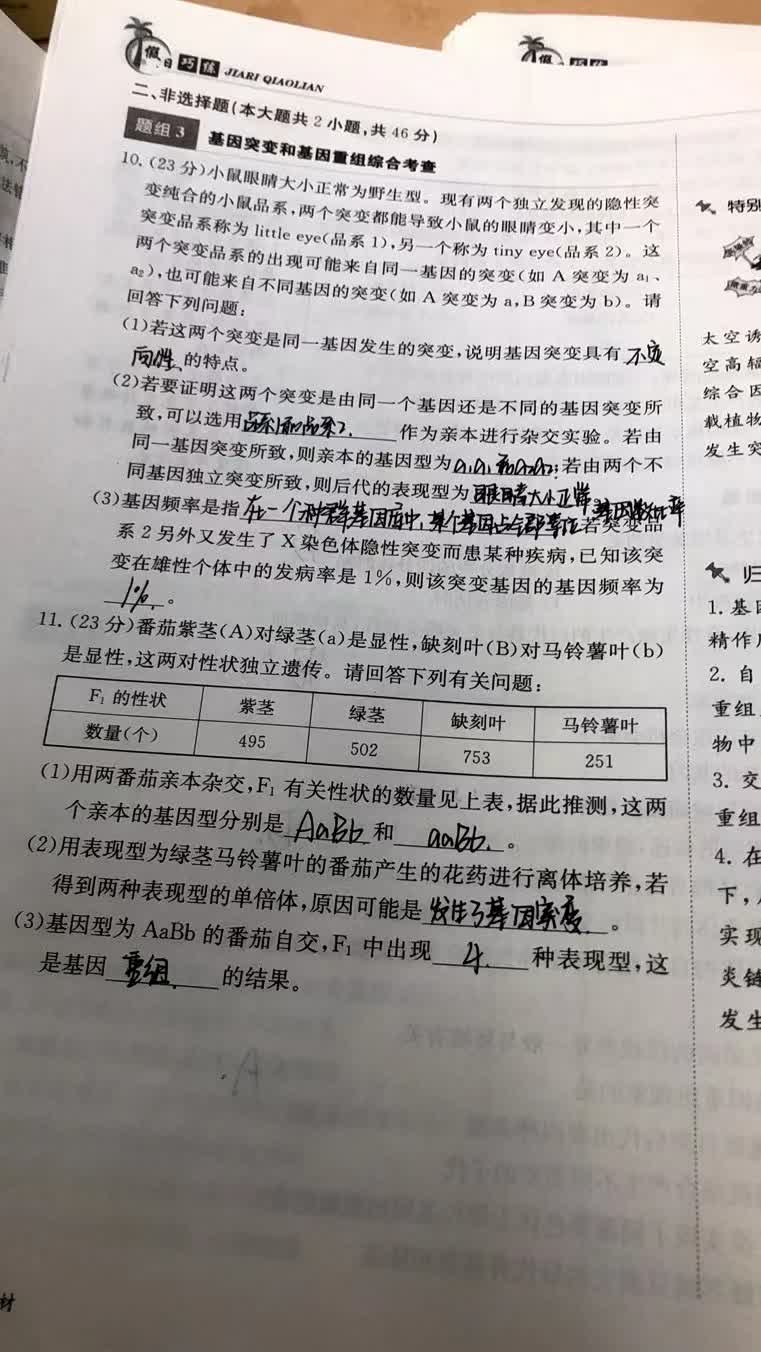 假日巧练 JIARI QIAOLIAN
二、非选择题(本大题共2小题,共46分)
题组3 基因突变和基因重组综合考查
10.(23分)小鼠眼睛大小正常为野生型。现有两个独立发现的隐性突
变纯合的小鼠品系,两个突变都能导致小鼠的眼睛变小,其中一个
突变品系称为little eye(品系1),另一个称为tiny eye(品系2)。这
两个突变品系的出现可能来自同一基因的突变(如A突变为a₁、
a₂),也可能来自不同基因的突变(如A突变为a,B突变为b)。请
回答下列问题:
(1)若这两个突变是同一基因发生的突变,说明基因突变具有 不定
向性 的特点。
(2)若要证明这两个突变是由同一个基因还是不同的基因突变所
致,可以选用 品系1和品系2 作为亲本进行杂交实验。若由
同一基因突变所致,则亲本的基因型为 a₁a₁和a₂a₂;若由两个不
同基因独立突变所致,则后代的表现型为 眼睛大小正常
(3)基因频率是指 在一个种群基因库中,某个基因占全部等位基因数比率 若突变品
系2另外又发生了X染色体隐性突变而患某种疾病,已知该突
变在雄性个体中的发病率是1%,则该突变基因的基因频率为
1%。
11.(23分)番茄紫茎(A)对绿茎(a)是显性,缺刻叶(B)对马铃薯叶(b)
是显性,这两对性状独立遗传。请回答下列有关问题:
F₁的性状 紫茎 绿茎 缺刻叶 马铃薯叶
数量(个) 495 502 753 251
(1)用两番茄亲本杂交,F₁有关性状的数量见上表,据此推测,这两
个亲本的基因型分别是 AaBb 和 aaBb 。
(2)用表现型为绿茎马铃薯叶的番茄产生的花药进行离体培养,若
得到两种表现型的单倍体,原因可能是 发生了基因突变 。
(3)基因型为AaBb的番茄自交,F₁中出现 4 种表现型,这
是基因 重组 的结果。
A
特别
太空诱
空高辐
综合因
载植物
发生突
归
1.基因
精作用
2.自
重组
物中
3.交
重组
4.在
下,
实现
炎链
发生
材